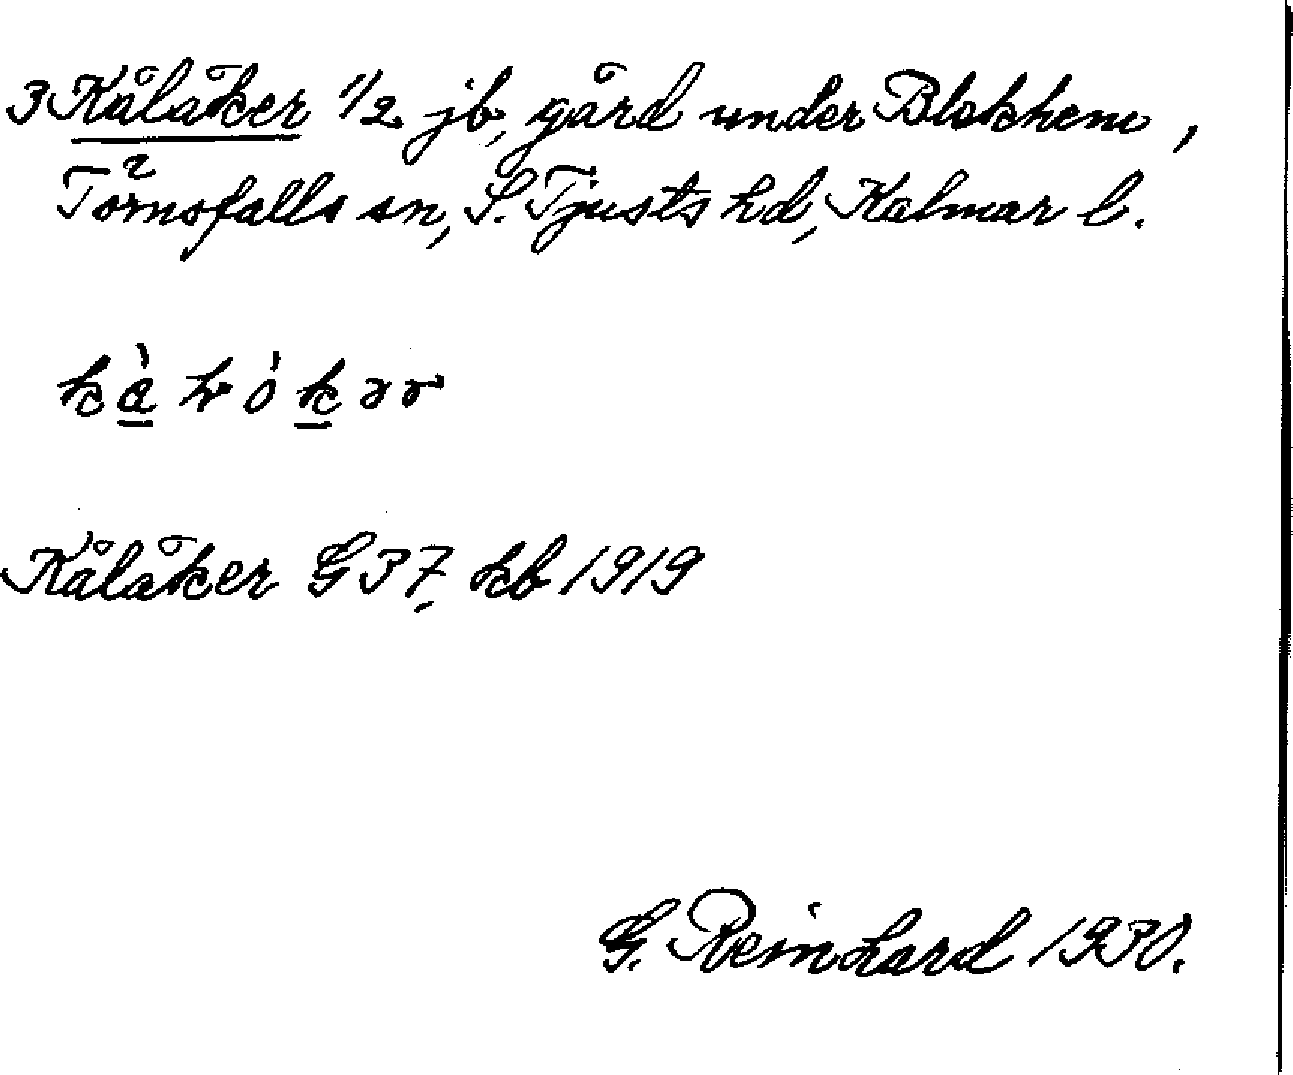 3 Kålåker 1/2 jb, gård under Blekhem,
Törnsfalls sn, S. Tjusts hd, Kalmar l.
Kålåker G 37, kb 1919
G. Reinhard 1930.